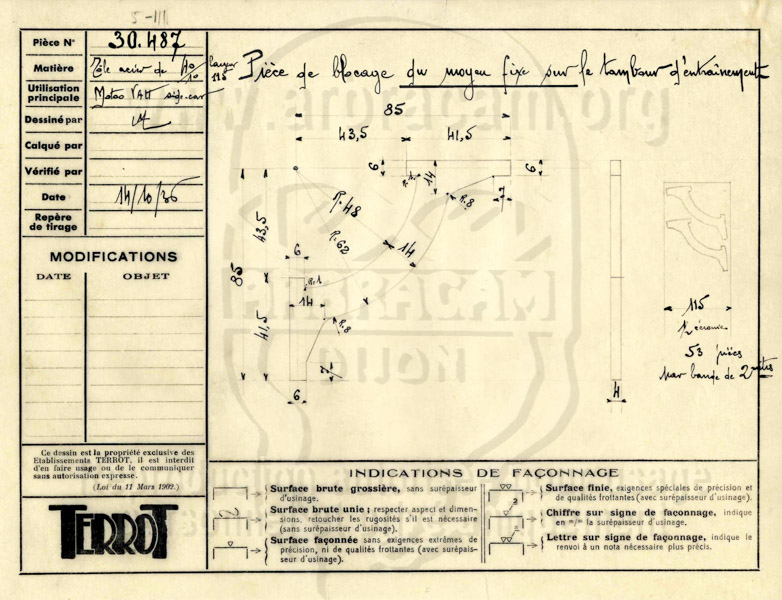 5-III
Pièce N° 30.487
Matière Tôle acier de 40/10 largeur 115
Utilisation principale Motos VATT side-car
Dessiné par
Calqué par
Vérifié par
Date 14/10/36
Repère de tirage
MODIFICATIONS
DATE OBJET
Ce dessin est la propriété exclusive des
Etablissements TERROT, il est interdit
d'en faire usage ou de le communiquer
sans autorisation expresse.
(Loi du 11 Mars 1902.)
TERROT
Pièce de blocage du moyeu fixe sur le tambour d'entraînement
www.arbracam.org
85
43,5 41,5
6 14 6
R.8 7
R.48
R.62
14
43,5
85
6
R.1
14
41,5
R.8
7
6
4
115
53 pièces
par bande de 2 mètres
ARBRACAM
DIJON
INDICATIONS DE FAÇONNAGE
Surface brute grossière, sans surépaisseur
d'usinage.
Surface brute unie; respecter aspect et dimen-
sions, retoucher les rugosités s'il est nécessaire
(sans surépaisseur d'usinage).
Surface façonnée sans exigences extrêmes de
précision, ni de qualités frottantes (avec surépais-
seur d'usinage).
Surface finie, exigences spéciales de précision et
de qualités frottantes (avec surépaisseur d'usinage).
Chiffre sur signe de façonnage, indique
en m/m la surépaisseur d'usinage.
Lettre sur signe de façonnage, indique le
renvoi à un nota nécessaire plus précis.